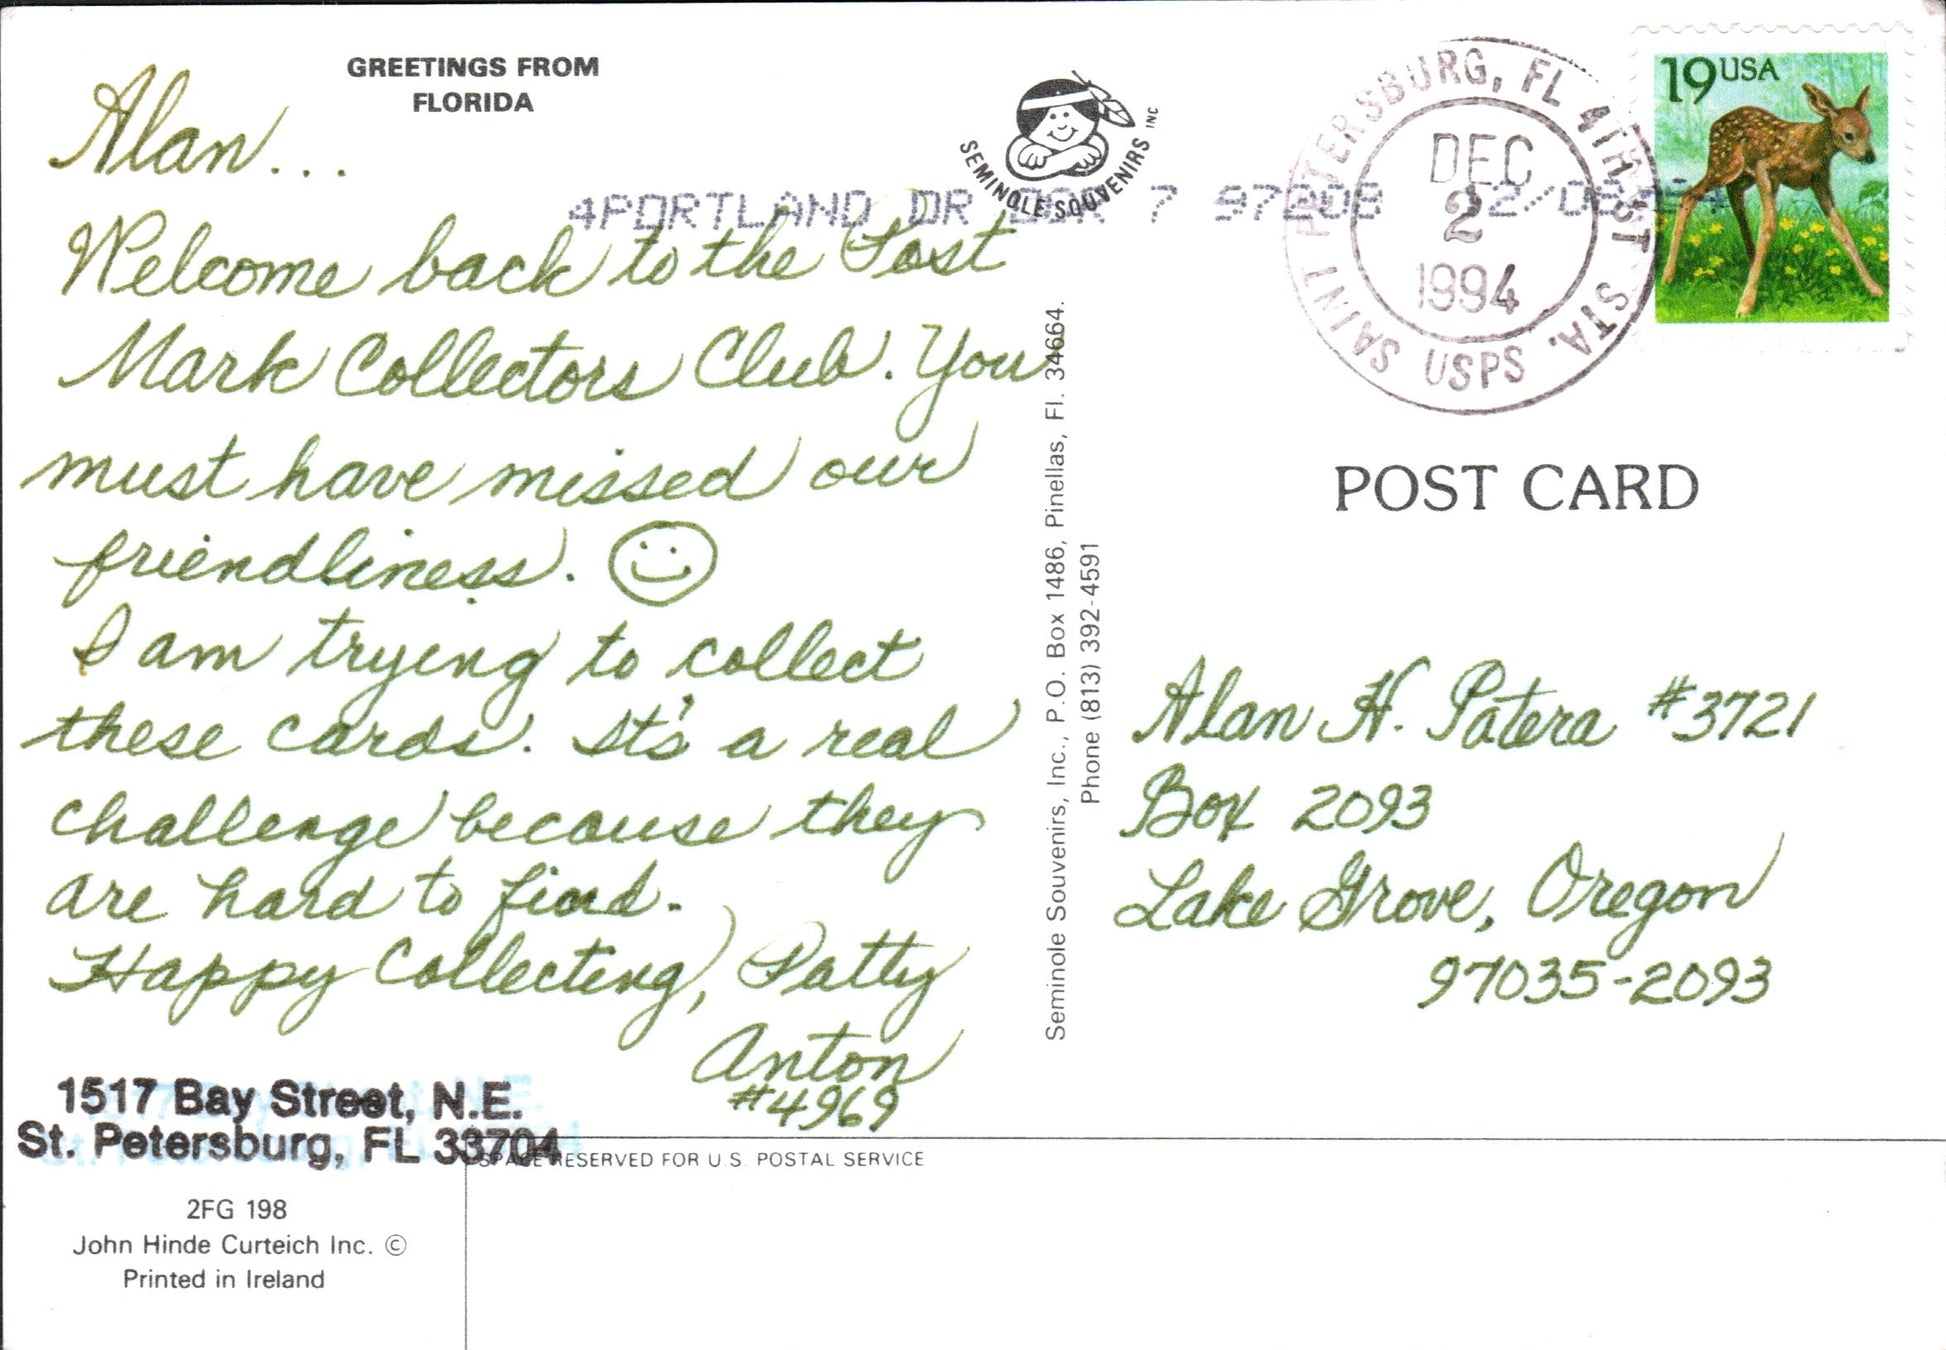 GREETINGS FROM
FLORIDA
Alan...
Welcome back to the Post
Mark Collectors Club. You
must have missed our
friendliness.
I am trying to collect
these cards. It's a real
challenge because they
are hard to find.
Happy Collecting, Patty
Anton
#4969
1517 Bay Street, N.E.
St. Petersburg, FL 33704
2FG 198
John Hinde Curteich Inc. ©
Printed in Ireland
SPACE RESERVED FOR U.S. POSTAL SERVICE
SEMINOLE SOUVENIRS INC
4PORTLAND OR 7 97208
Seminole Souvenirs, Inc., P.O. Box 1486, Pinellas, Fl. 34664.
Phone (813) 392-4591
SAINT PETERSBURG, FL 4TH ST STA.
USPS
DEC
2
1994
19USA
POST CARD
Alan H. Patera #3721
Box 2093
Lake Grove, Oregon
97035-2093